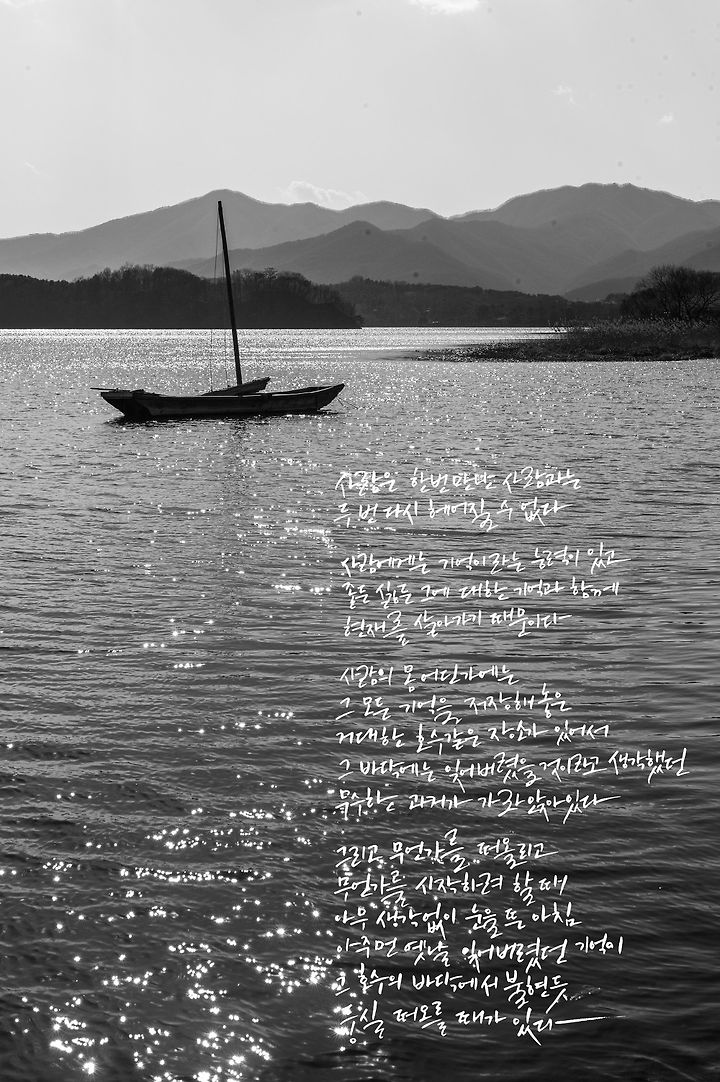 사람은 한번 만난 사람과는
두 번 다시 헤어질 수 없다
사람에게는 기억이라는 능력이 있고
좋든 싫든 그에 대한 기억과 함께
현재를 살아가기 때문이다
사람의 몸 어딘가에는
그 모든 기억을 저장해 놓은
거대한 호수같은 장소가 있어서
그 바닥에는 잊어버렸을 것이라고 생각했던
무수하는 과거가 가라앉아 있다
그리고 무언가를 떠올리고
무언가를 시작하려 할 때
아무 생각없이 눈을 뜬 아침
아주먼 옛날 잊어버렸던 기억이
그 호수의 바닥에서 불현듯
둥실 떠오를 때가 있다